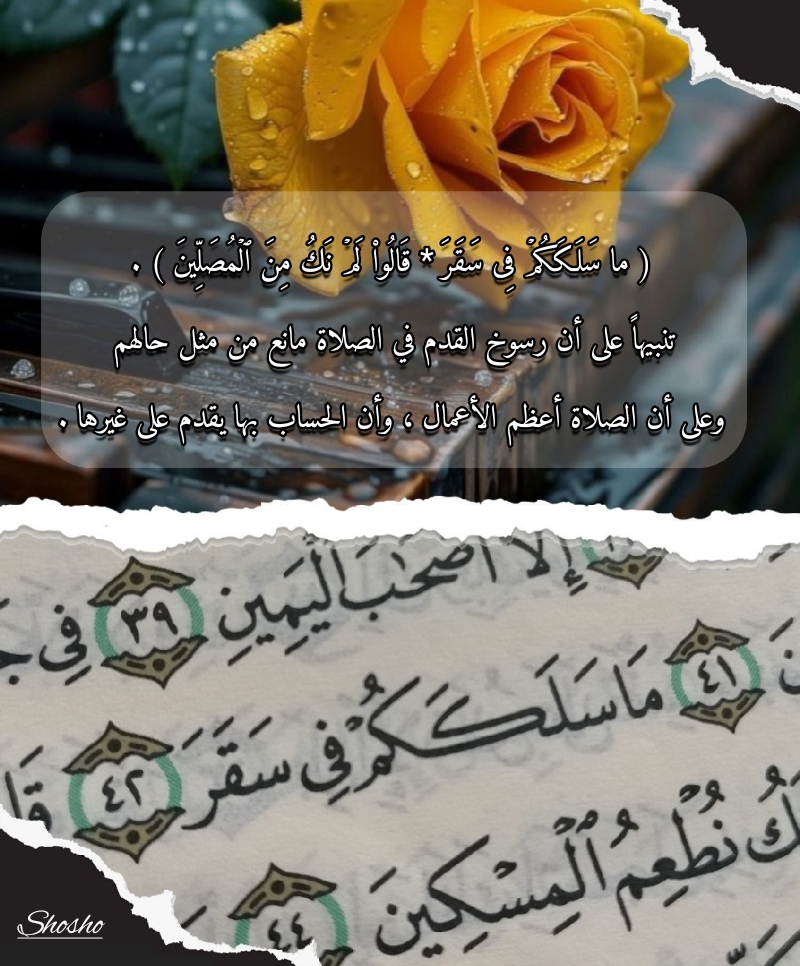 ( ما سَلَكَكُمْ فِى سَقَرَ * قَالُوا۟ لَمْ نَكُ مِنَ ٱلْمُصَلِّينَ ) .
تنبيهاً على أن رسوخ القدم في الصلاة مانع من مثل حالهم
وعلى أن الصلاة أعظم الأعمال ، وأن الحساب بها يقدم على غيرها .
إِلَّا أَصْحَٰبَ ٱلْيَمِينِ ٣٩ فِى
٤١ مَا سَلَكَكُمْ فِى سَقَرَ ٤٢
نُطْعِمُ ٱلْمِسْكِينَ ٤٤
Shosho